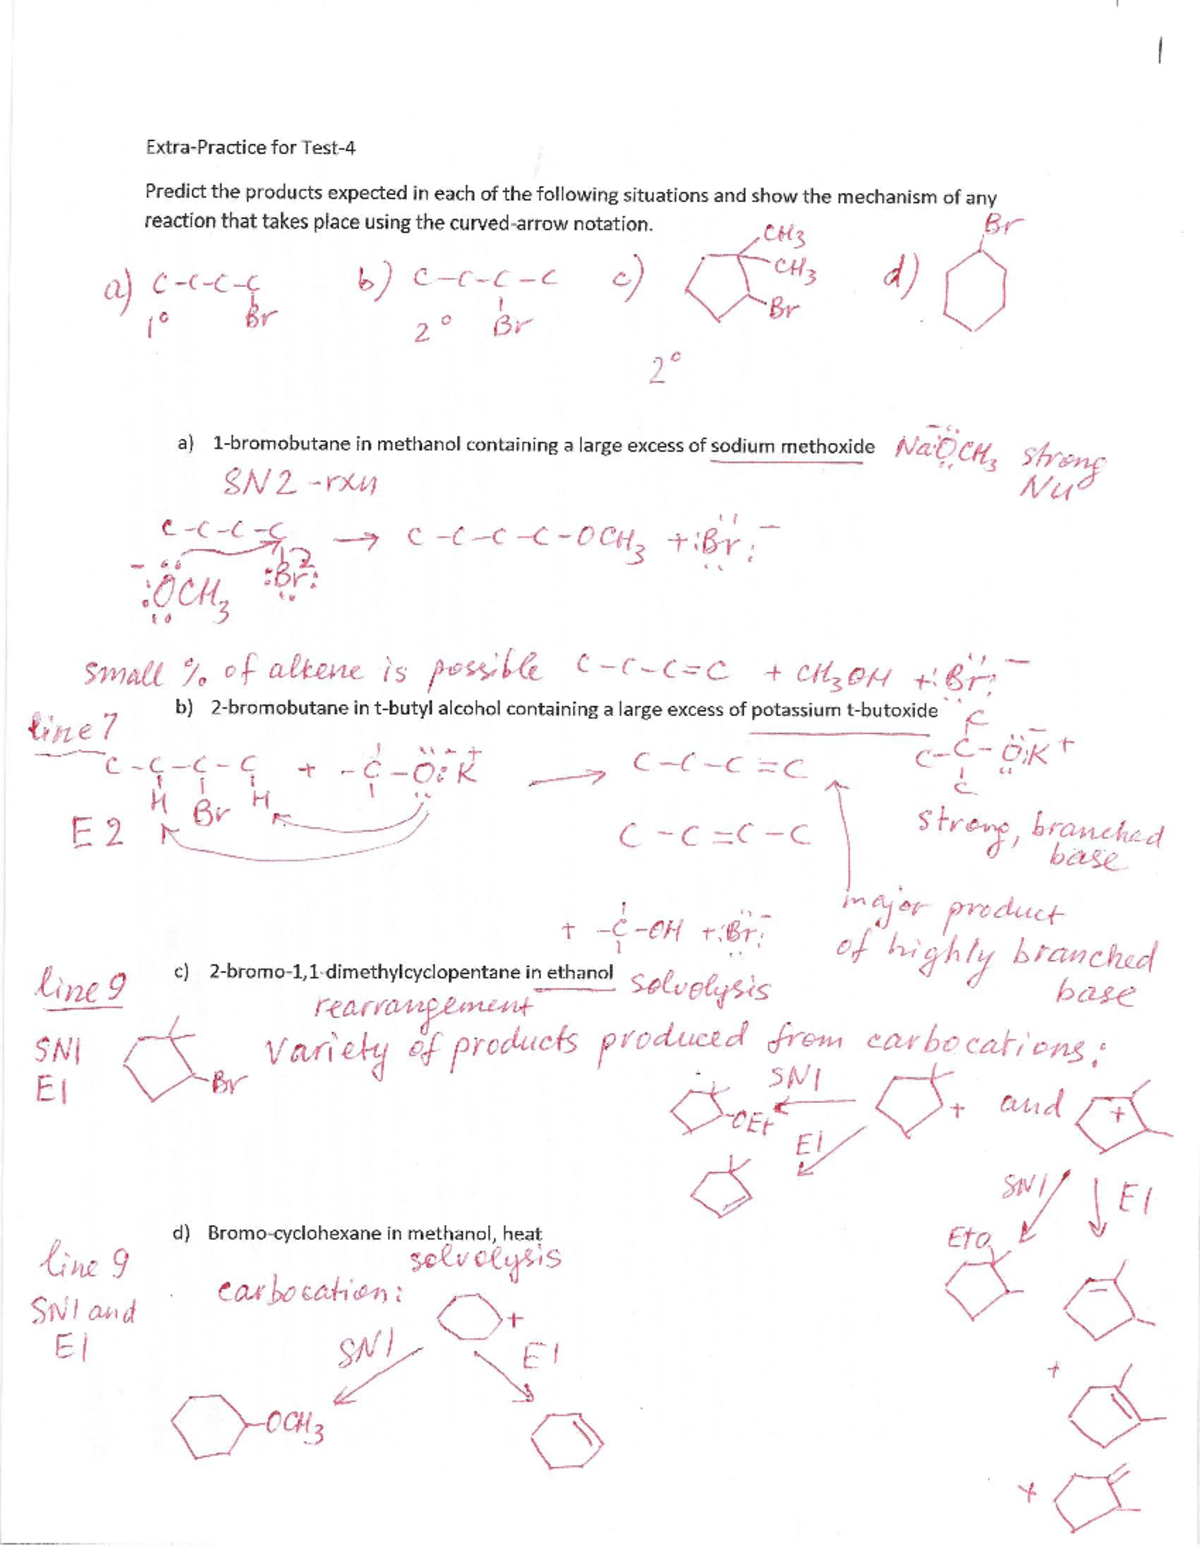 1
Extra-Practice for Test-4
Predict the products expected in each of the following situations and show the mechanism of any
reaction that takes place using the curved-arrow notation.
a) C-C-C-C Br 1°
b) C-C-C-C Br 2°
c) CH3 CH3 Br 2°
d) Br
a) 1-bromobutane in methanol containing a large excess of sodium methoxide NaOCH3 strong Nu
SN2-rxn
C-C-C-C → C-C-C-C-OCH3 + :Br:⁻
⁻:OCH3 :Br:
small % of alkene is possible C-C-C=C + CH3OH + :Br:⁻
b) 2-bromobutane in t-butyl alcohol containing a large excess of potassium t-butoxide
line 7
C-C-C-C + -C-O:⁻K⁺ → C-C-C=C
H Br H
C-C-O:⁻K⁺
C
C
E2
C-C=C-C
strong, branched
base
major product
of highly branched
base
+ -C-OH + :Br:⁻
c) 2-bromo-1,1-dimethylcyclopentane in ethanol solvolysis
line 9
rearrangement
SN1
E1
Br
Variety of products produced from carbocations:
SN1
OEt
+ and +
E1
SN1 E1
EtO
+
+
d) Bromo-cyclohexane in methanol, heat
line 9
solvolysis
SN1 and
E1
carbocation:
+
SN1 E1
-OCH3